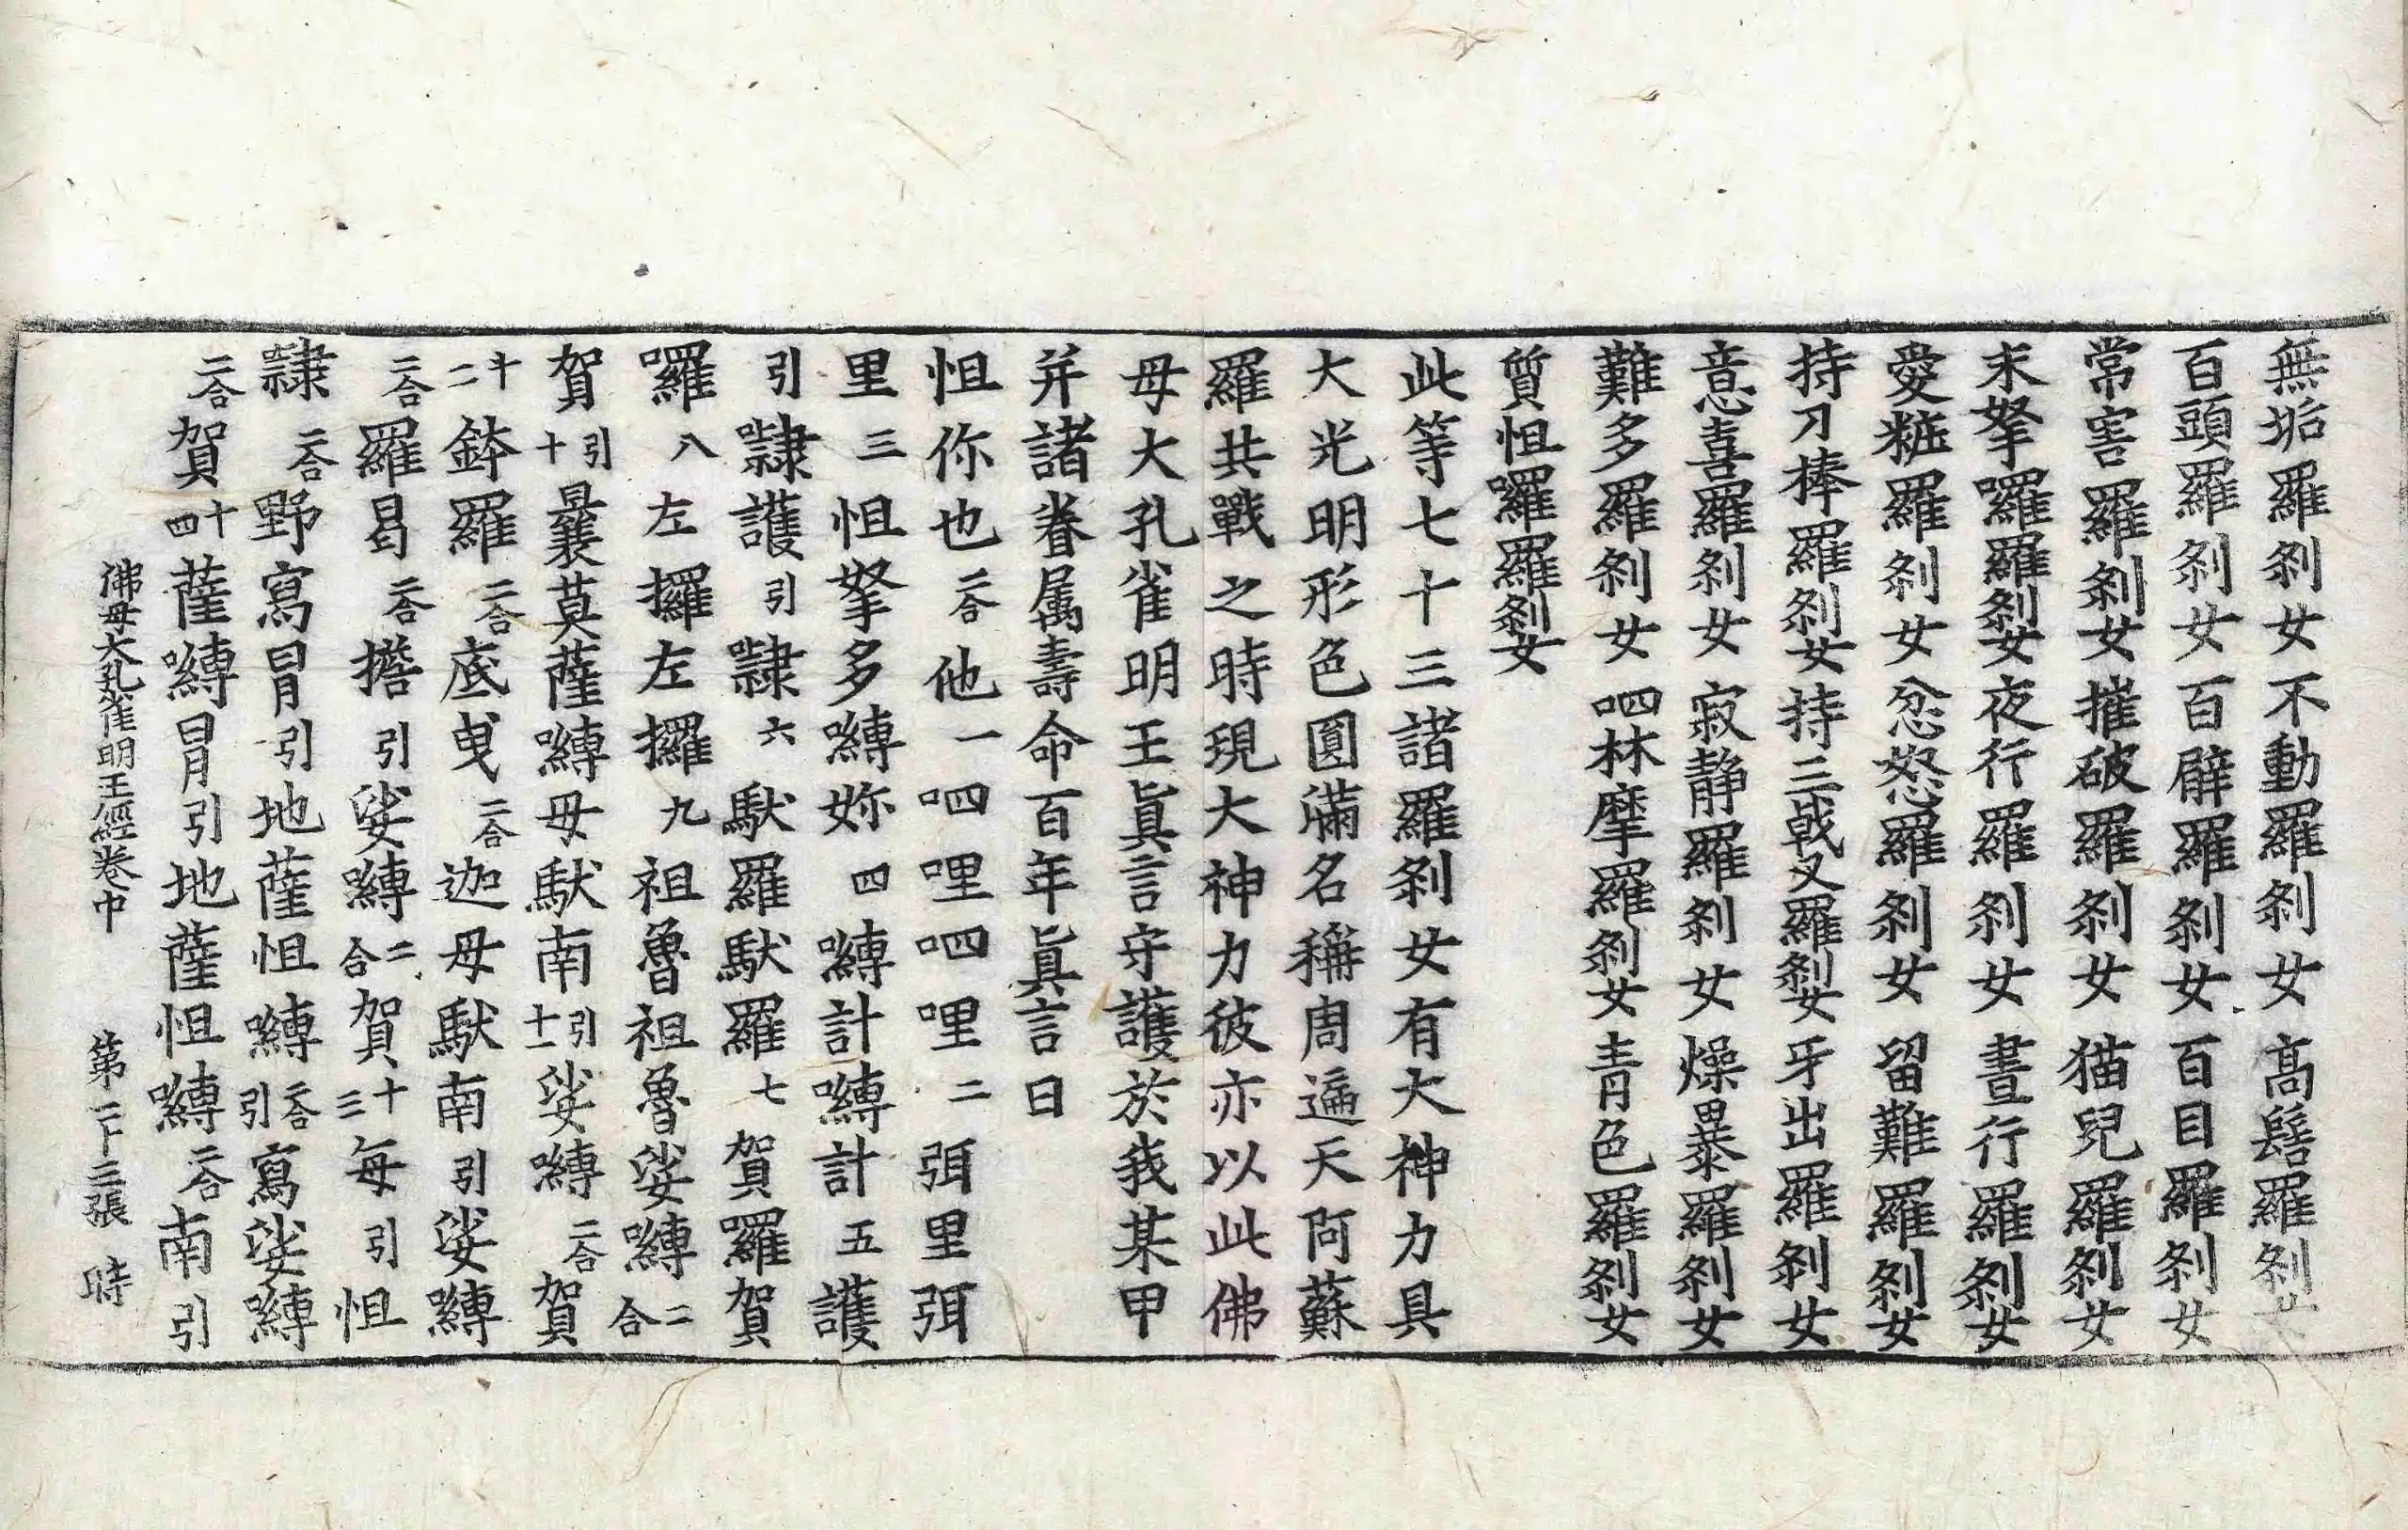 無垢羅剎女不動羅剎女高髻羅剎女
百頭羅剎女百臂羅剎女百目羅剎女
常害羅剎女摧破羅剎女猫兒羅剎女
末拏囉羅剎女夜行羅剎女晝行羅剎女
愛粧羅剎女忿怒羅剎女留難羅剎女
持刀棒羅剎女持三戟叉羅剎女牙出羅剎女
意喜羅剎女寂靜羅剎女燥暴羅剎女
難多羅剎女呬林摩羅剎女青色羅剎女
質怛囉羅剎女
此等七十三諸羅剎女有大神力具
大光明形色圓滿名稱周遍天阿蘇
羅共戰之時現大神力彼亦以此佛
母大孔雀明王真言守護於我某甲
并諸眷属壽命百年真言曰
怛你也二合他一呬哩呬哩二弭里弭
里三怛拏多嚩妳四嚩計嚩計五護
引隸護引隸六馱羅馱羅七賀羅賀
囉八左攞左攞九祖魯祖魯娑嚩二合
賀引十曩莫薩嚩母馱南引十一娑嚩二合賀
十二鉢羅二合底曳二合迦母馱南引娑嚩
二合羅曷二合擔引娑嚩二合賀十三每引怛
隸二合野寫冒引地薩怛嚩二合引寫娑嚩
二合賀十四薩嚩冒引地薩怛嚩二合南引
佛母大孔雀明王經卷中 第二十三張 時